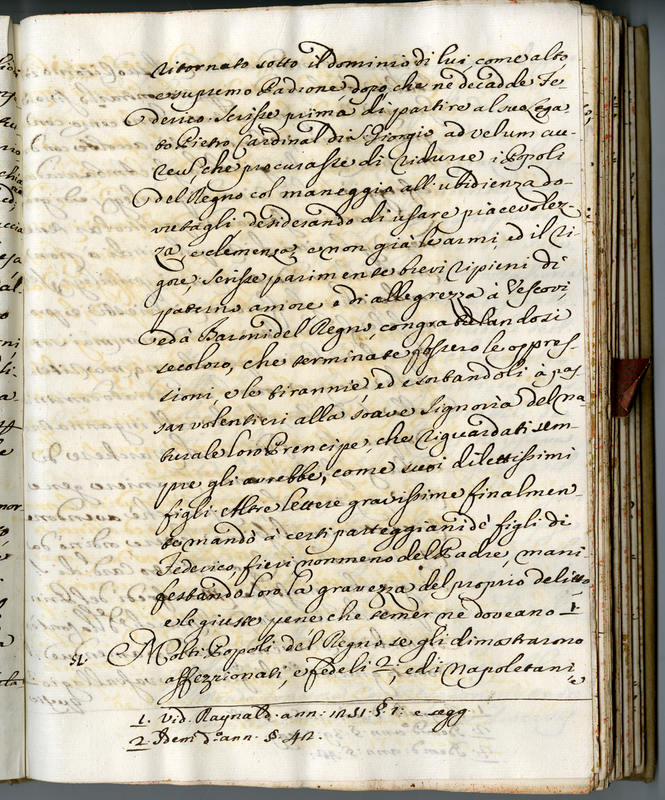 ritornato sotto il dominio di lui come alto
e supremo Padrone dopo che ne decadde Fe-
derico. Scrisse prima di partire al suo Lega-
to Pietro Cardinal di S. Giorgio ad velum au-
reu, che procurasse di ridurre i Popoli
del Regno col maneggio all'ubidienza do-
vutagli desiderando di usare piacevolez-
za, e clemenza, e non già le armi, ed il ri-
gore; scrisse parimente brevi ripieni di
paterno amore e di allegrezza à Vescovi,
ed à Baroni del Regno, congratulandosi
secoloro, che terminate fossero le oppres-
sioni, e le tirannie, ed esortandoli à pas
sar volentieri alla soave Signoria del na
turale loro Prencipe, che riguardati sem-
pre gli avrebbe, come suoi dilettissimi
figli. Altre lettere gravissime finalmen-
te mandò à certi parteggiani de' figli di
Federico, fieri non meno del Padre, mani
festando loro la gravezza del proprio delitto,
e le giuste pene che temer ne doveano 1.
51. Molti Popoli del Regno se gli dimostrarono
affezzionati, e fedeli 2, ed i Napoletani
e
1. Vid. Raynald. ann: 1251. § 1: e segg.
2. Idem d.º ann. §. 42.